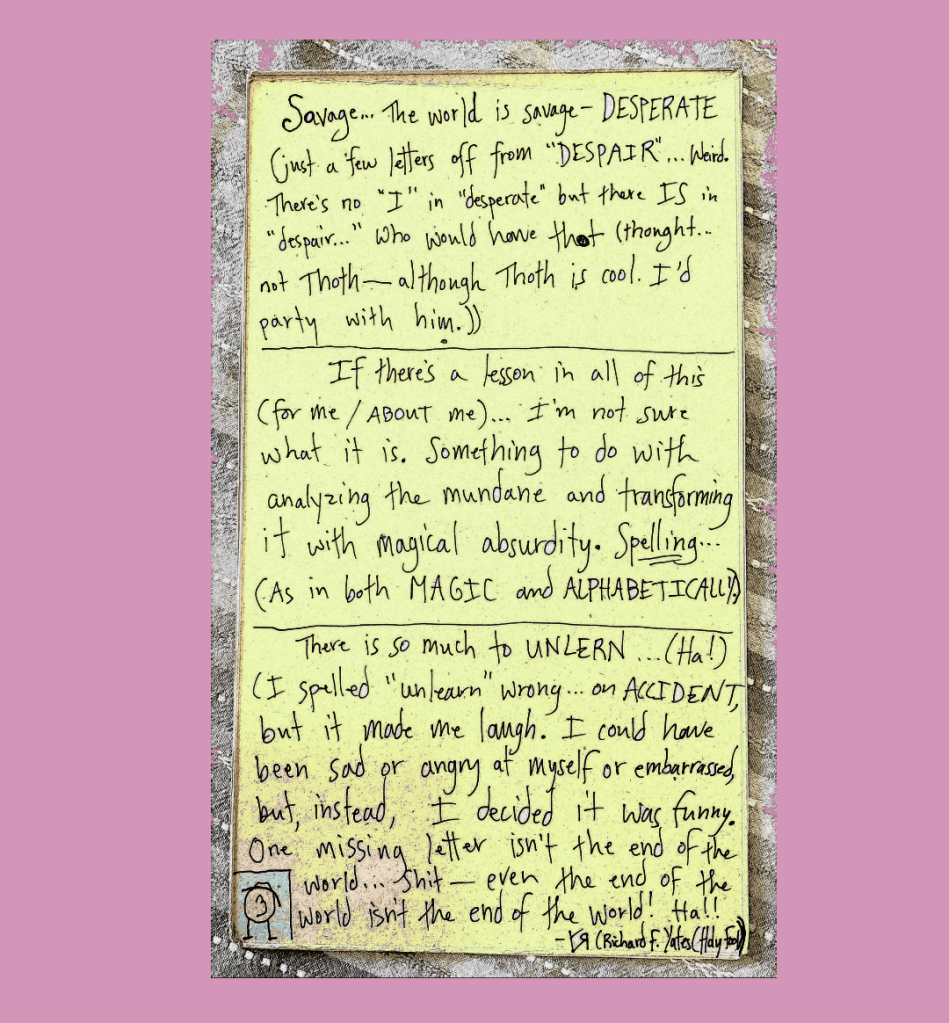 Savage... The world is savage — DESPERATE
(just a few letters off from "DESPAIR"... Weird.
There's no "I" in "desperate" but there IS in
"despair..." Who would have that (thought...
not Thoth — although Thoth is cool. I'd
party with him.))
If there's a lesson in all of this
(for me / ABOUT me)... I'm not sure
what it is. Something to do with
analyzing the mundane and transforming
it with magical absurdity. Spelling...
(As in both MAGIC and ALPHABETICALLY.)
There is so much to UNLERN ...(Ha!)
(I spelled "unlearn" wrong... on ACCIDENT,
but it made me laugh. I could have
been sad or angry at myself or embarrassed,
but, instead, I decided it was funny.
One missing letter isn't the end of the
world... Shit — even the end of the
world isn't the end of the world! Ha!!
3
— (Richard F. Yates (Holy Fool))